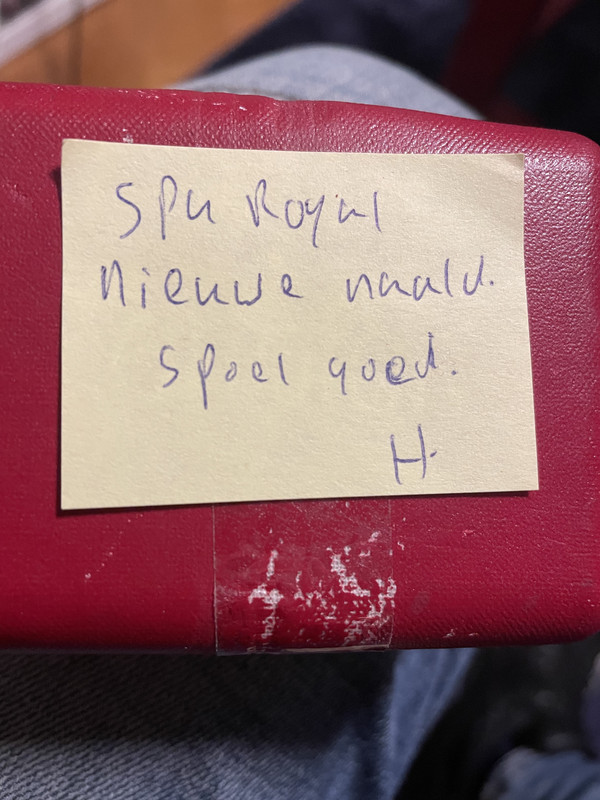 Spu Royal
Nieuwe naald.
Spoel goed.
H.